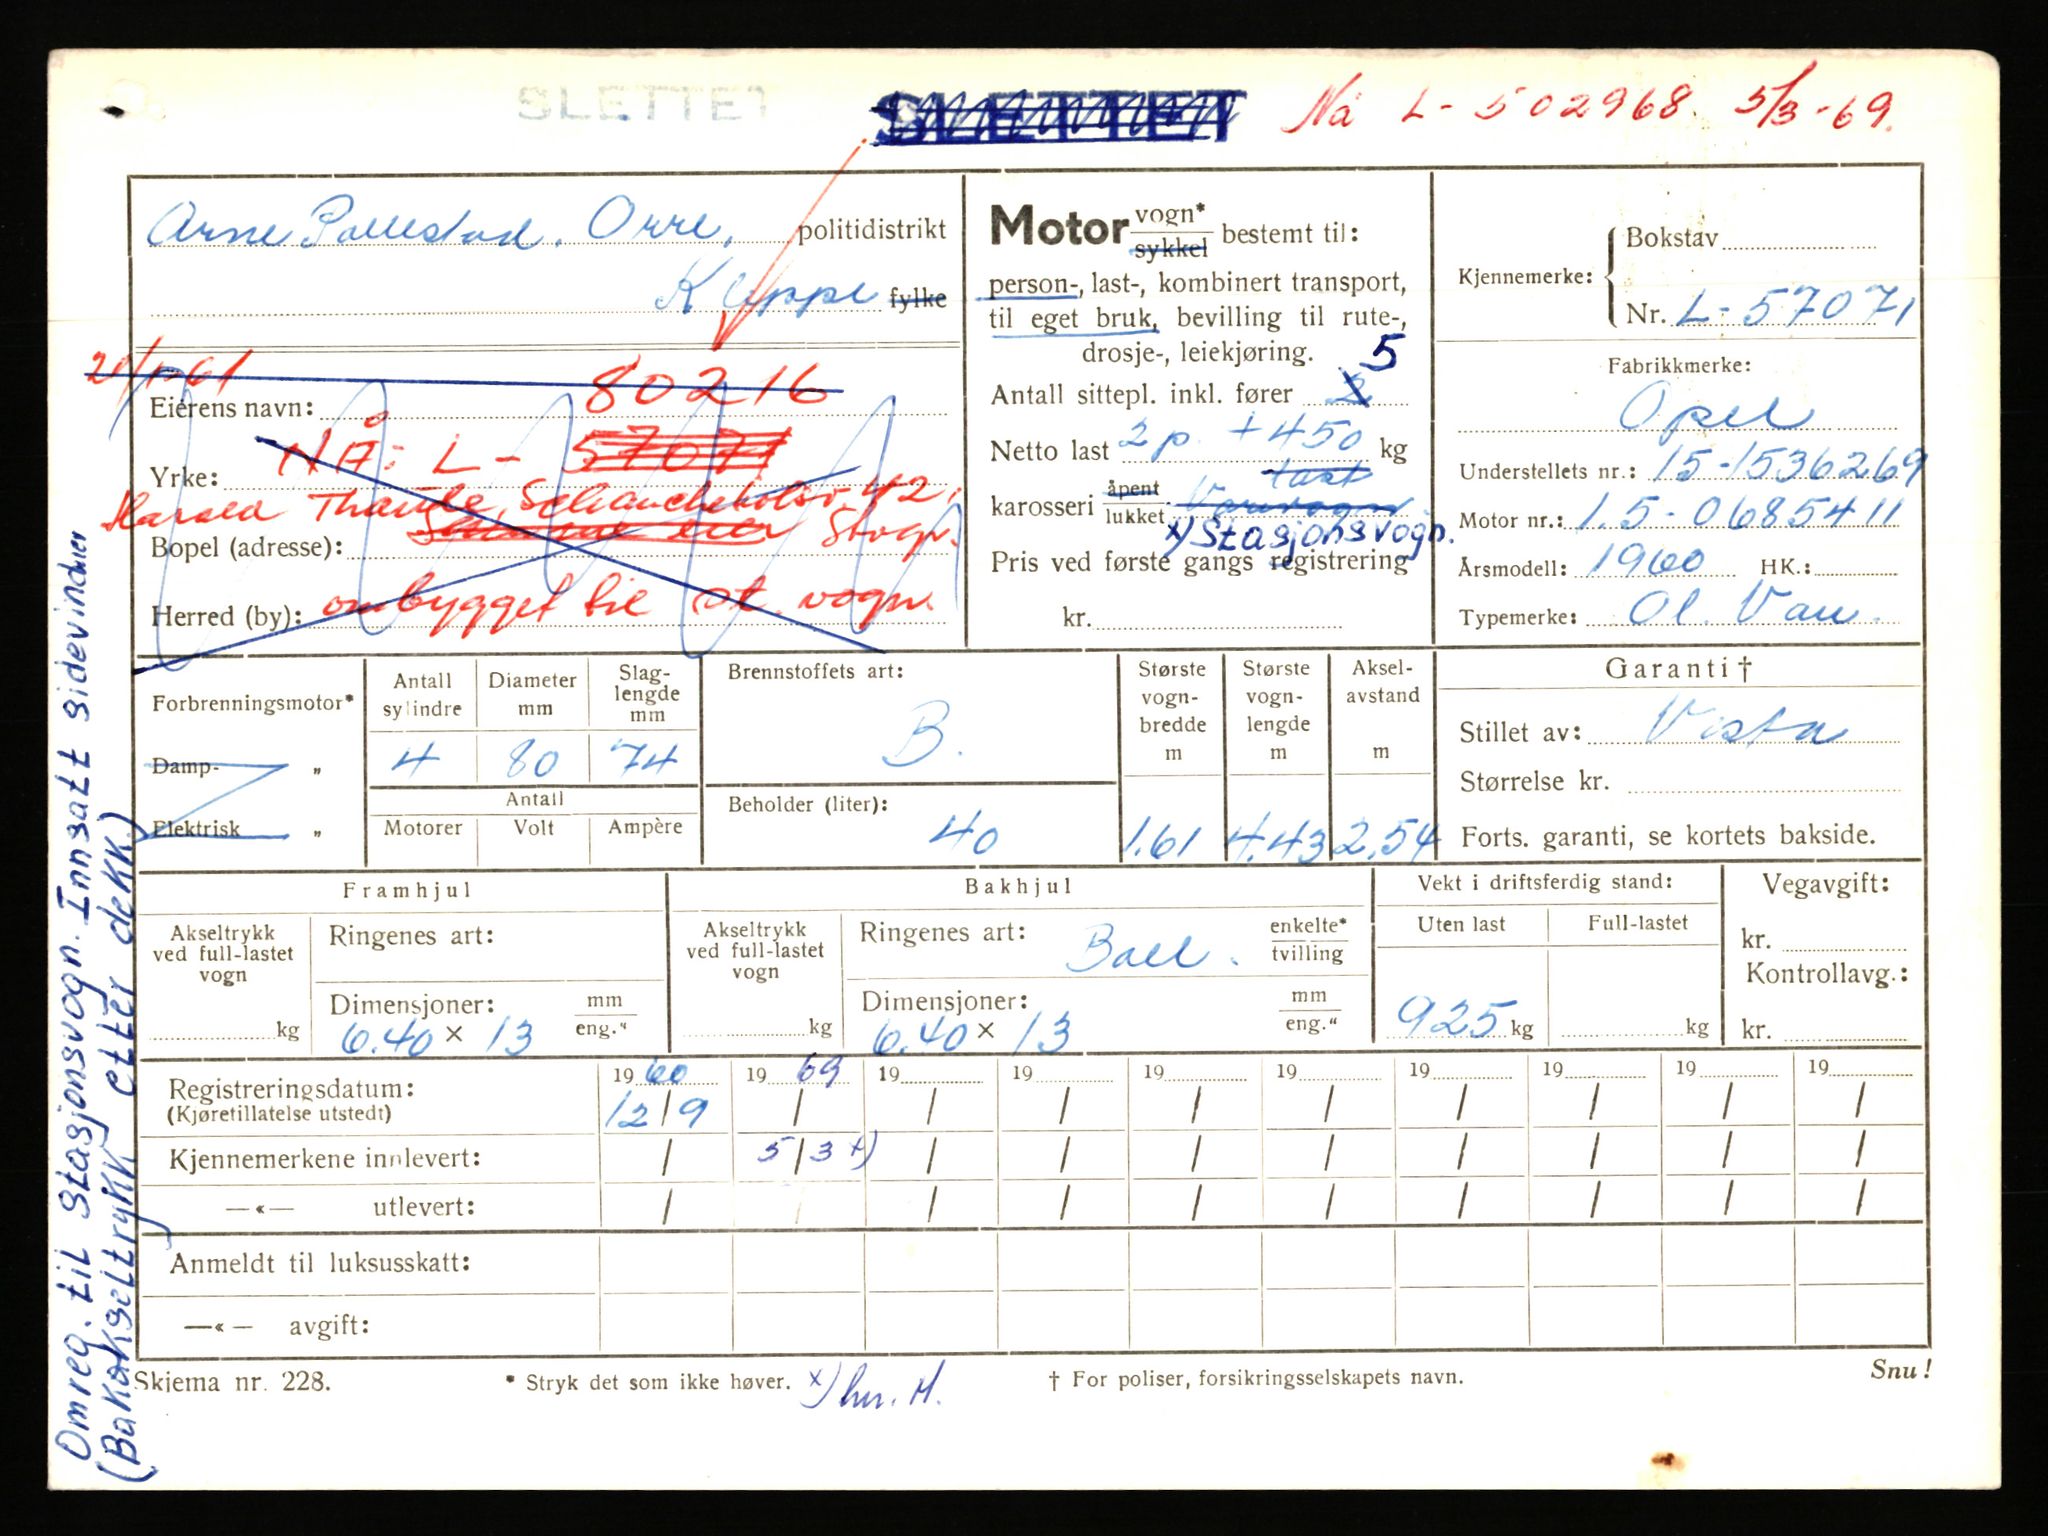 SLETTET SLETTET Nå L-502968. 5/3-69.
Arne Pollestad. Orre, politidistrikt
Kleppe fylke
28/10-61 80216
Eierens navn:
NÅ: L- 57071
Yrke:
Harald Thaule, Schancheholen 42,
Stvgr.
Bopel (adresse):
Herred (by): ombygget til st. vogn.
Motor vogn* / sykkel bestemt til:
person-, last-, kombinert transport,
til eget bruk, bevilling til rute-,
drosje-, leiekjøring.
Antall sittepl. inkl. fører 2 5
Netto last 2 p. + 450 kg
last
karosseri åpent / lukket Varevogn
x) Stasjonsvogn.
Pris ved første gangs registrering
kr.
Kjennemerke: Bokstav
Nr. L-57071
Fabrikkmerke:
Opel
Understellets nr.: 15-1536269
Motor nr.: 1.5-0685411
Årsmodell: 1960 HK.:
Typemerke: Ol. Van.
Forbrenningsmotor*
Damp- „
Elektrisk „
Antall sylindre Diameter mm Slag-lengde mm
4 80 74
Antall
Motorer Volt Ampère
Brennstoffets art:
B.
Beholder (liter):
40
Største vogn-bredde m Største vogn-lengde m Aksel-avstand m
1.61 4.43 2.54
Garanti †
Stillet av: Vesta
Størrelse kr.
Forts. garanti, se kortets bakside.
Framhjul
Akseltrykk ved full-lastet vogn
kg
Ringenes art:
Dimensjoner: mm / eng."
6.40 × 13
Bakhjul
Akseltrykk ved full-lastet vogn
kg
Ringenes art: Ball. enkelte* / tvilling
Dimensjoner: mm / eng."
6.40 × 13
Vekt i driftsferdig stand:
Uten last Full-lastet
925 kg kg
Vegavgift:
kr.
Kontrollavg.:
kr.
Registreringsdatum: 19 60 19 69 19 19 19 19 19 19 19 19
(Kjøretillatelse utstedt) 12/9 / / / / / / / / /
Kjennemerkene innlevert: / 5/3 x) / / / / / / / /
—«— utlevert: / / / / / / / / / /
Anmeldt til luksusskatt:
—«— avgift:
Skjema nr. 228. * Stryk det som ikke høver. x) hvr. M. † For poliser, forsikringsselskapets navn. Snu!
Omreg. til stasjonsvogn. Innsatt sidevinduer
(Bakakseltrykk etter dekk.)